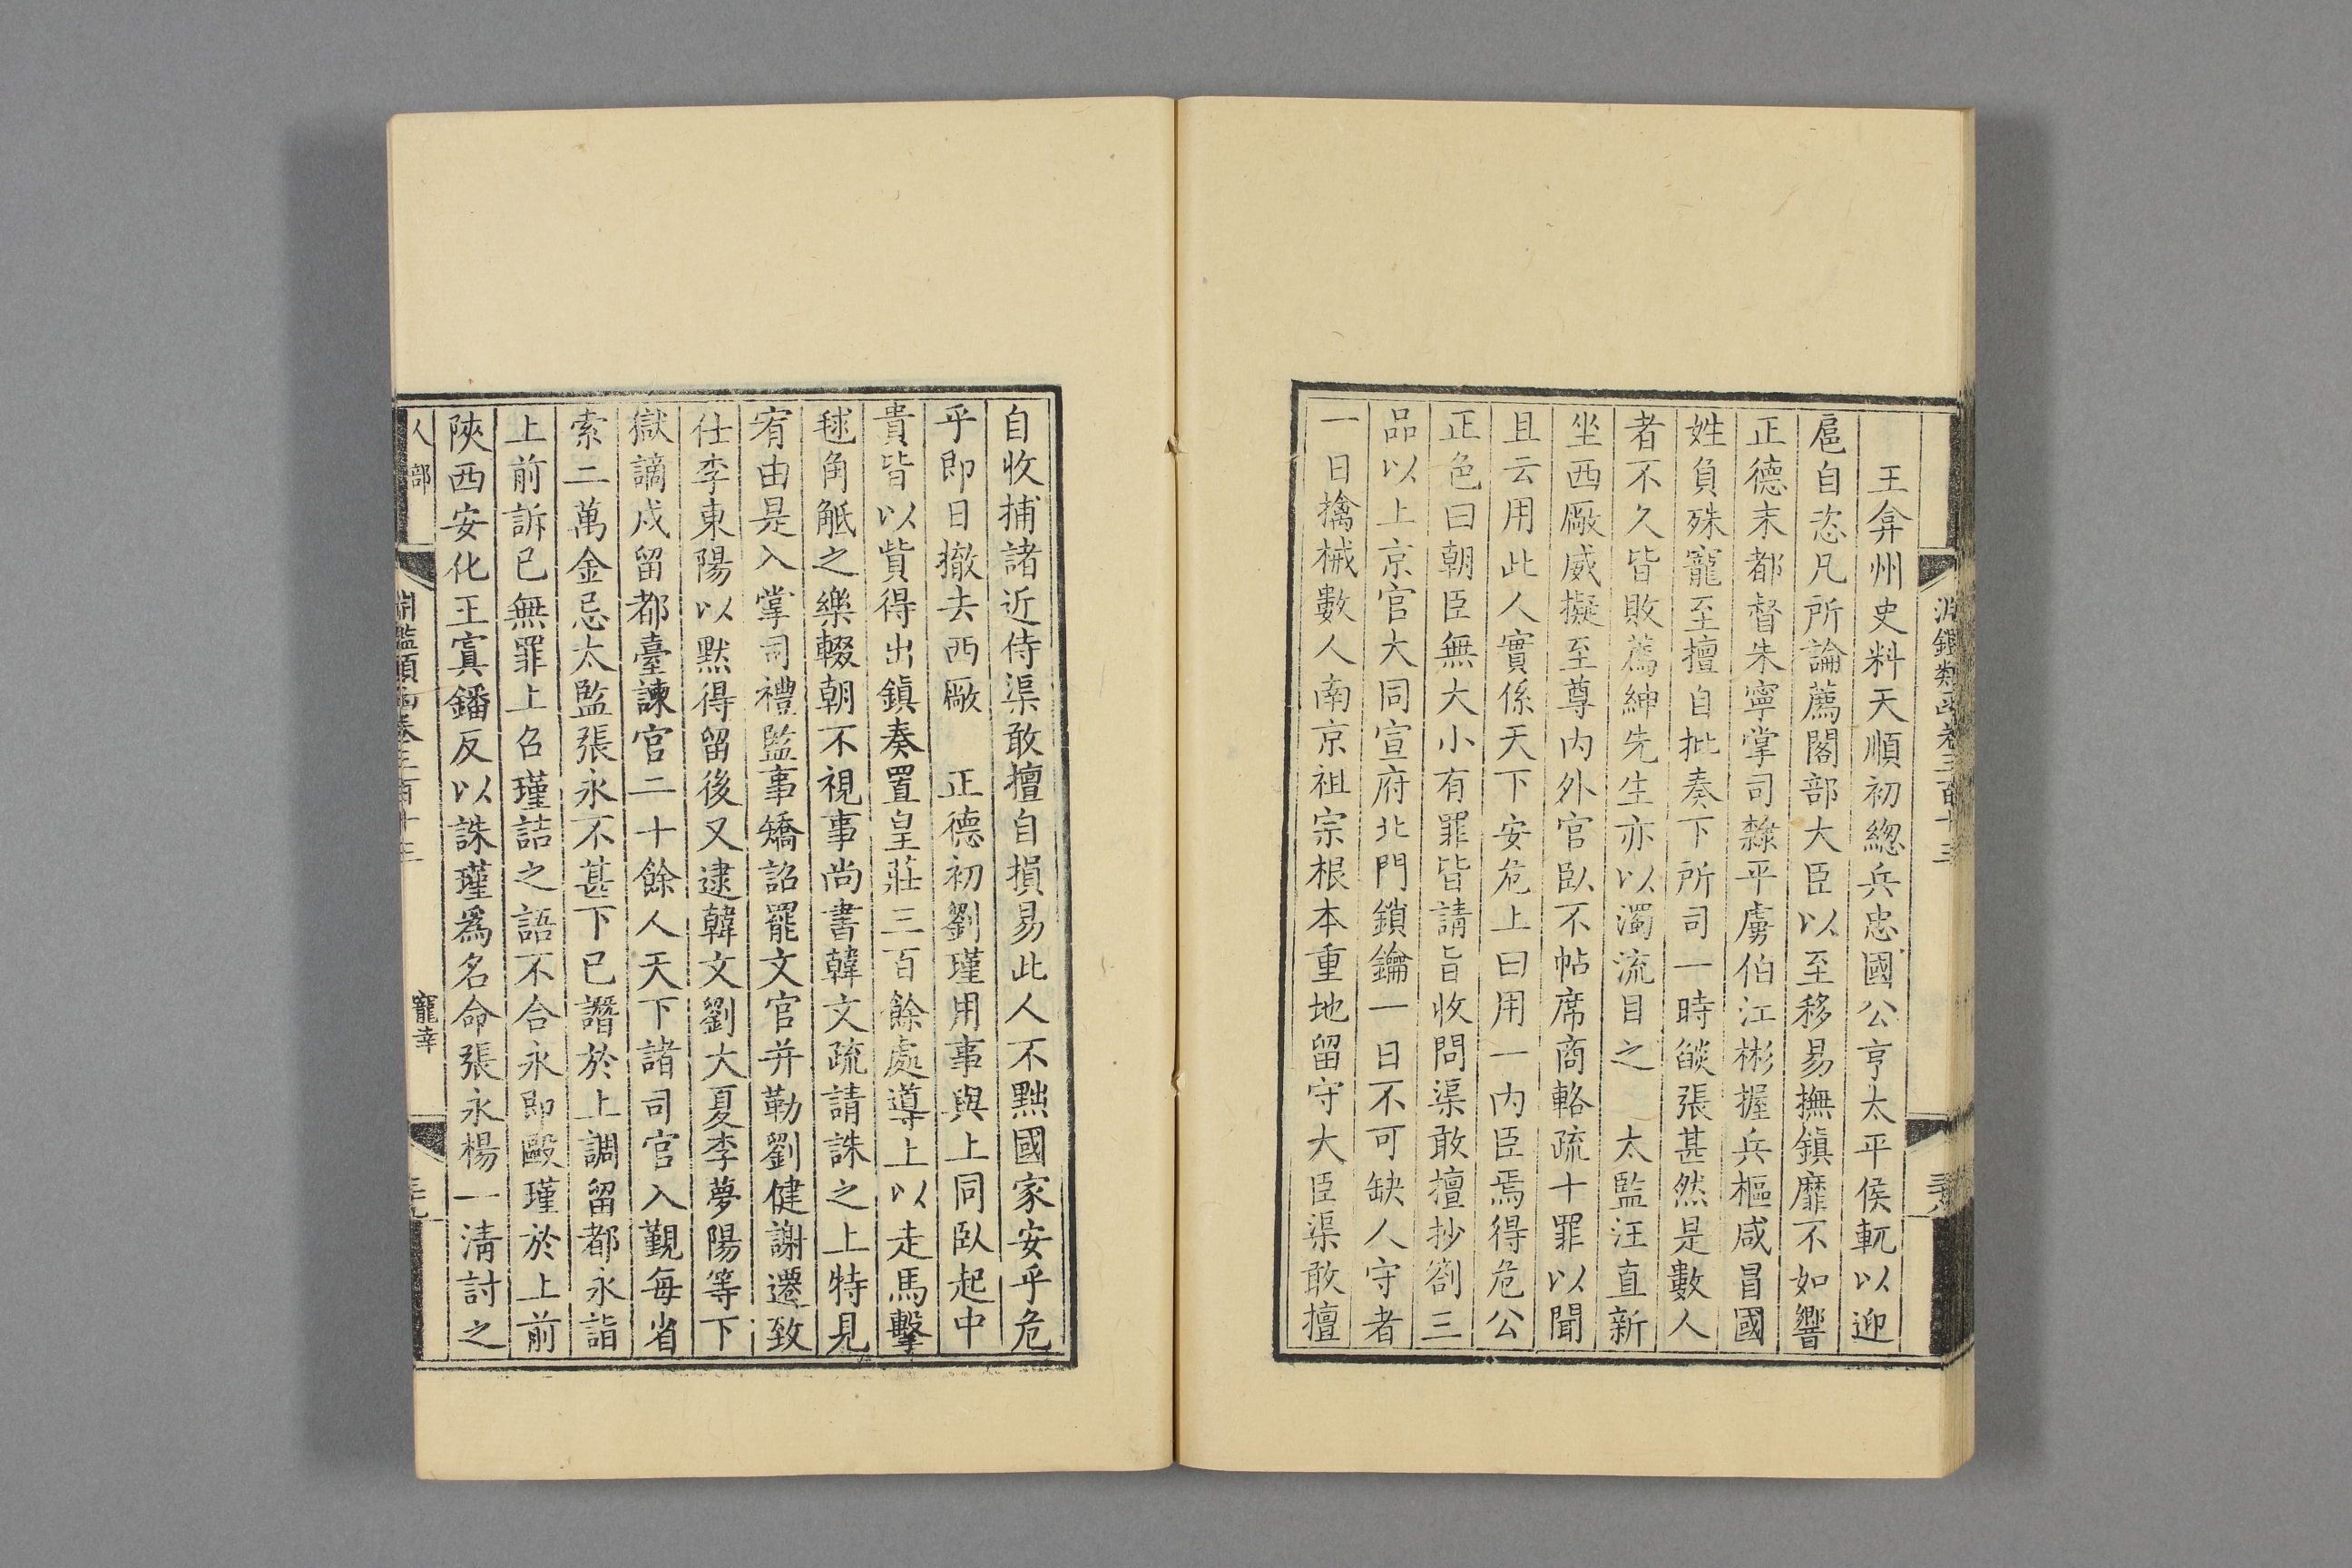 淵鑑類函卷三百十三
王弇州史料天順初緫兵忠國公亨太平侯軏以迎
扈自恣凡所論薦閣部大臣以至移易撫鎮靡不如響
正德末都督朱寧掌司隸平虜伯江彬握兵樞咸冒國
姓負殊寵至擅自批奏下所司一時燄張甚然是數人
者不久皆敗薦紳先生亦以濁流目之　太監汪直新
坐西厰威擬至尊內外官臥不帖席商輅疏十罪以聞
且云用此人實係天下安危上曰用一內臣焉得危公
正色曰朝臣無大小有罪皆請旨收問渠敢擅抄劄三
品以上京官大同宣府北門鎖鑰一日不可缺人守者
一日擒械數人南京祖宗根本重地留守大臣渠敢擅
自收捕諸近侍渠敢擅自損易此人不黜國家安乎危
乎即日撤去西厰　正德初劉瑾用事與上同臥起中
貴皆以貲得出鎮奏置皇莊三百餘處導上以走馬擊
毬角觝之樂輟朝不視事尚書韓文疏請誅之上特見
宥由是入掌司禮監事矯詔罷文官并勒劉健謝遷致
仕李東陽以默得留後又逮韓文劉大夏李夢陽等下
獄謫戍留都臺諫官二十餘人天下諸司官入覲每省
索二萬金忌太監張永不甚下已譖於上調留都永詣
上前訴已無罪上召瑾詰之語不合永即毆瑾於上前
陝西安化王寘鐇反以誅瑾爲名命張永楊一淸討之
人部
淵鑑類函卷三百十三
寵幸